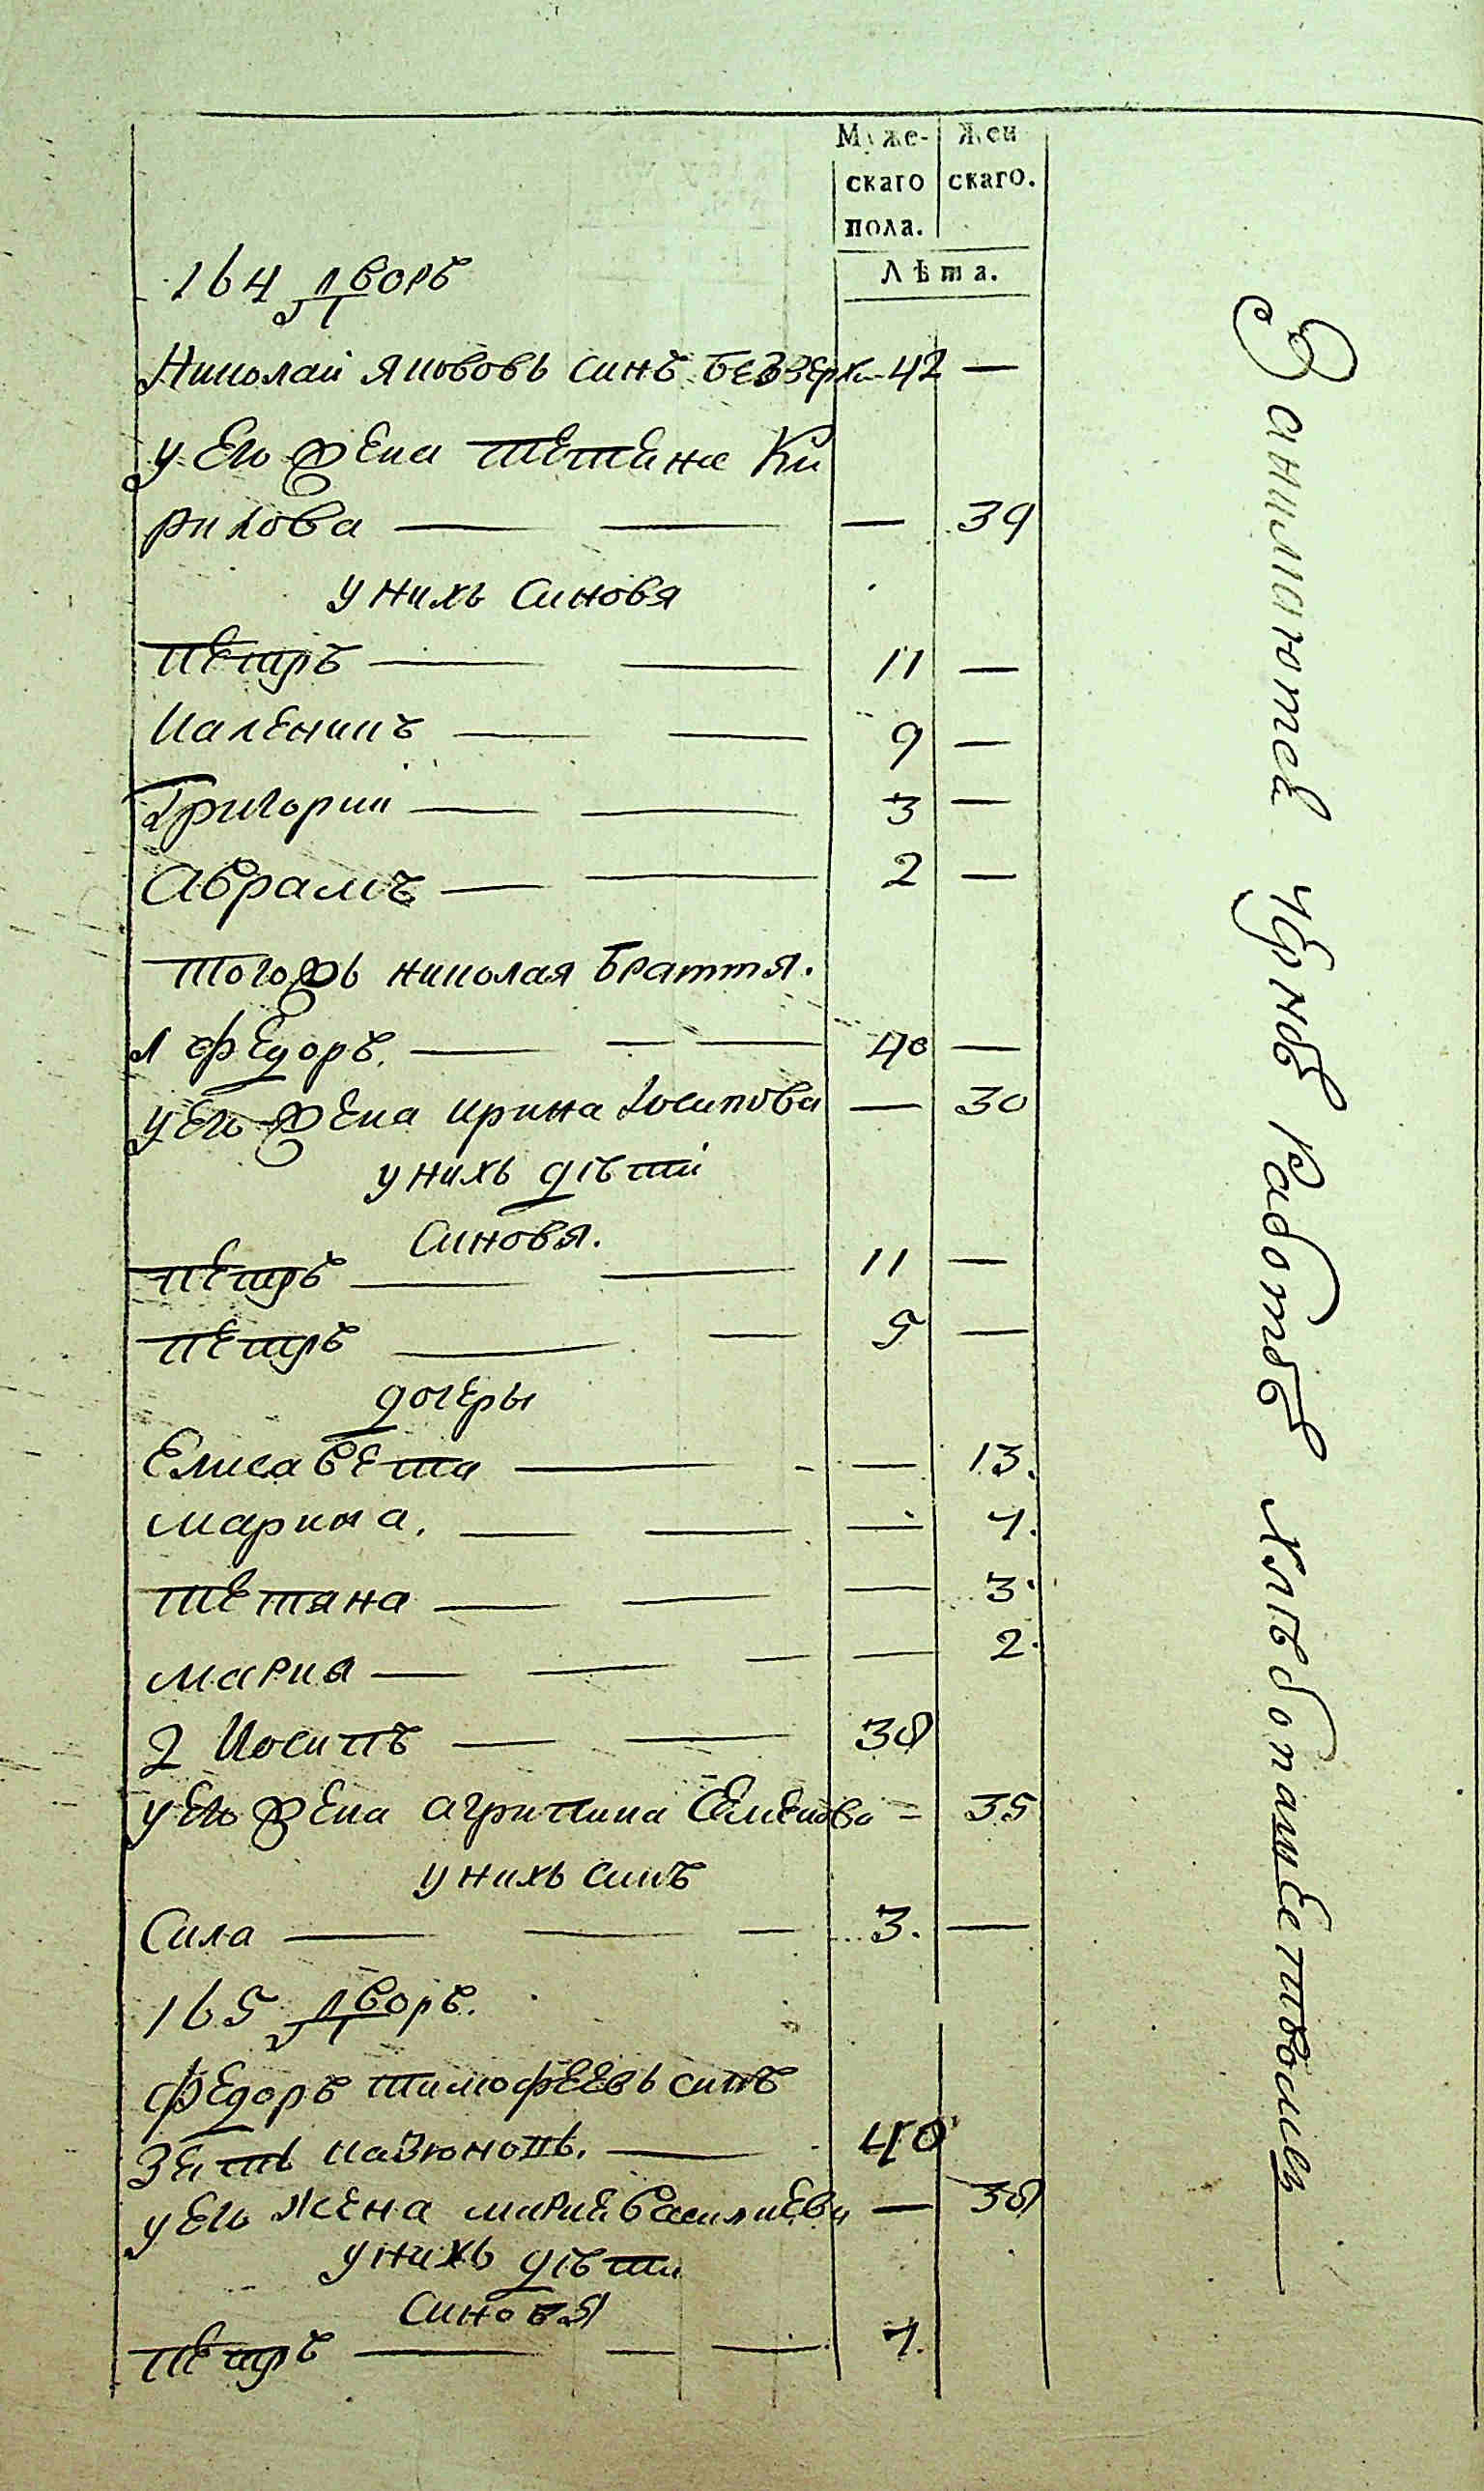 Муже-
скаго
пола.
Жен
скаго.
Лѣта.
164 дворъ
Николай Якововь синъ Беззерхи 42 —
у его жена тетяна Ки
рилова — — — 39
у нихь синовя
петръ — — 11 —
Каленикъ — — 9 —
Григории — — 3 —
Аврамъ — — 2 —
тогожь николая браття.
1 Федоръ. — — — 40 —
у его жена ирина Іосипова — 30
у нихь дѣти
синовя.
петръ — — 11 —
петръ — — 5 —
дочеры
Елисавета — - — 13.
марина. — — — 7.
тетяна — — — 3.
мария — — — — 2.
2 Иосипъ — — 38
у его жена агрипина Семенова = 35
у нихь синъ
Сила — — — 3. —
165 дворъ.
Федоръ тимофеевь синъ
Зять — 40
у его жена мария василиева — 38
у нихь дѣти
синовя
петръ — — — 7.
Занимаютсѣ чорною работою хлѣбопашетвомъ —